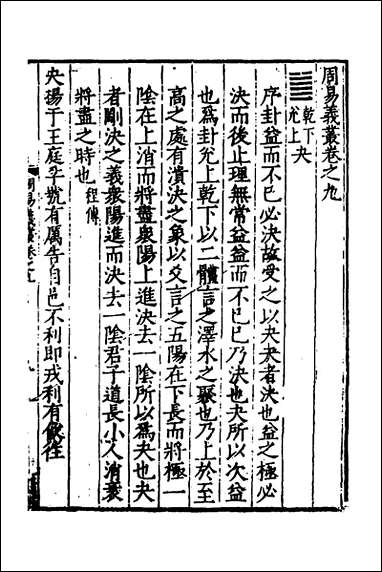 周易義叢卷之九
乾下
兌上
夬
序卦益而不已必決故受之以夬夬者決也益之極必
決而後止理無常益益而不已已乃決也夬所以次益
也為卦兌上乾下以二體言之澤水之聚也乃上於至
高之處有潰決之象以爻言之五陽在下長而將極一
陰在上消而將盡衆陽上進決去一陰所以為夬也夬
者剛決之義衆陽進而決去一陰君子道長小人消衰
將盡之時也程傳
夬揚于王庭孚號有厲告自邑不利即戎利有攸往